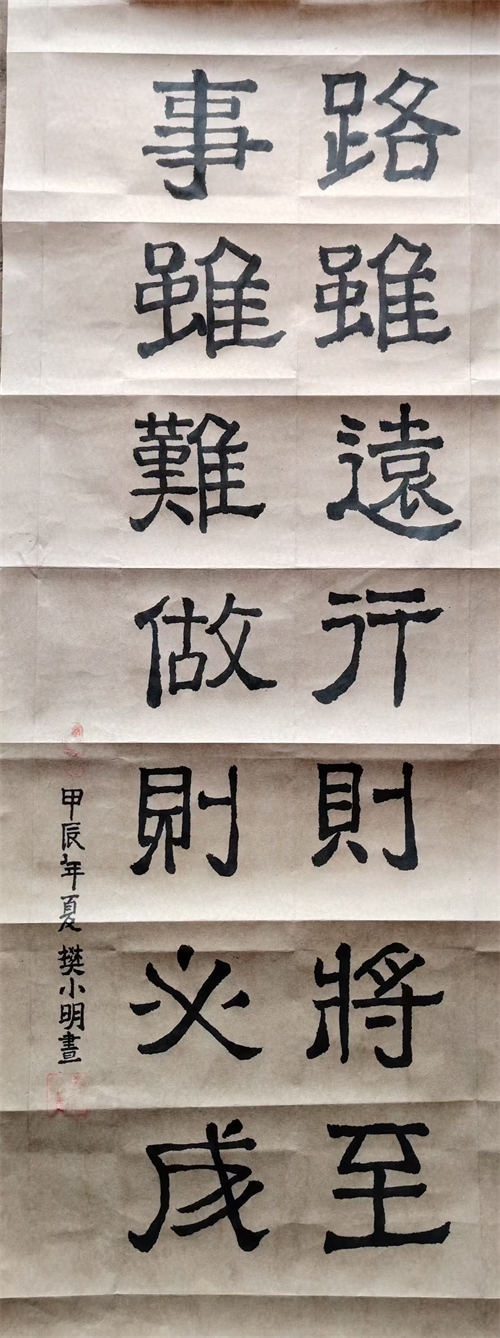 路雖遠行則將至
事雖難做則必成
甲辰年夏樊小明書